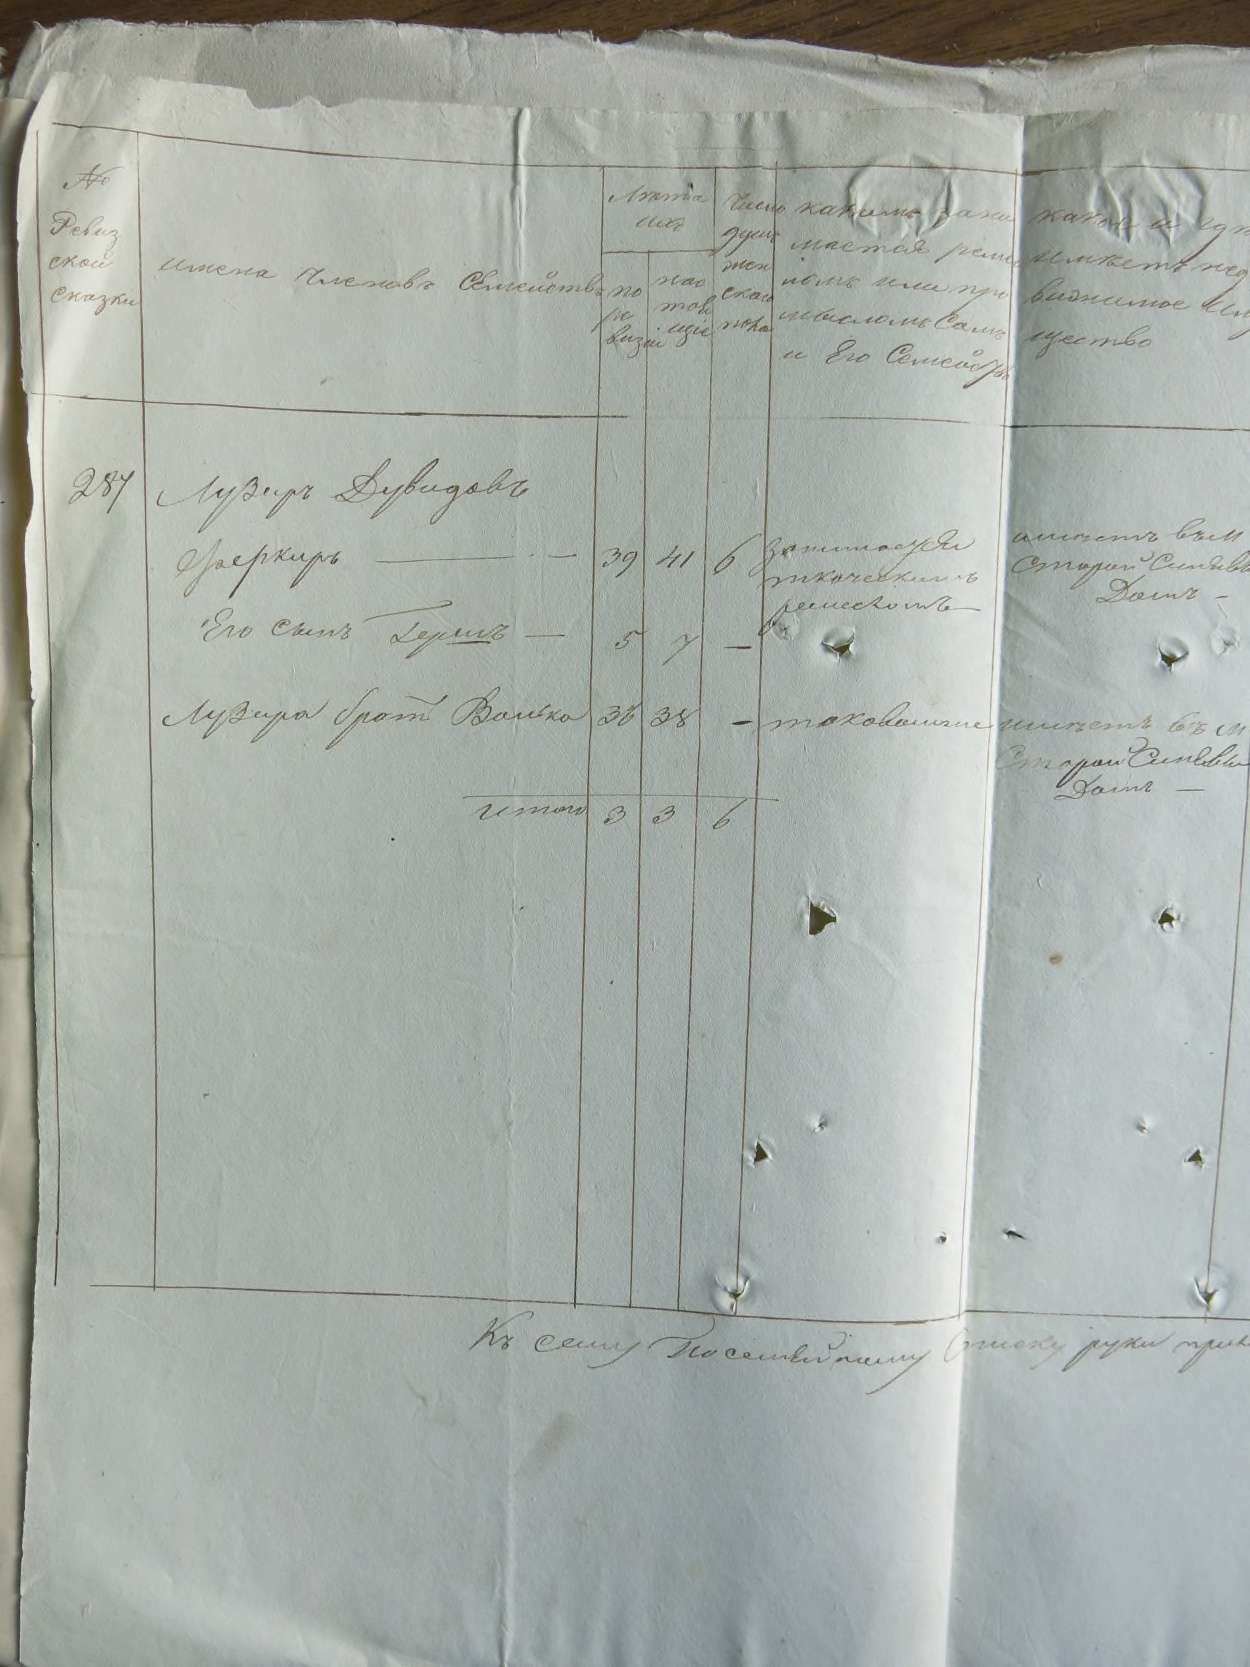 №
Ревиз
ской
сказки
имена Членовъ Семействъ
Лѣта
ихъ
по
ре
визіи
нас
тоя
щіе
Число
душъ
жен
скаго
пола
какимъ зани
мается реме
ломъ или про
мысломъ Самъ
и Его Семейство
какое и гдѣ
имѣетъ нед
вижимое Им
щество
287 Лузеръ Дувидовъ
39 41 6 занимается
ткаческимъ
ремесломъ
имѣетъ въ М
Старой Синявѣ
Домъ -
Его сынъ Гершъ — 5 7 —
Лузера братъ Волько 36 38 - таковымже имѣетъ въ М
Старой Синявы
Домъ —
Итого 3 3 6
Къ сему Посемейному Списку руки при